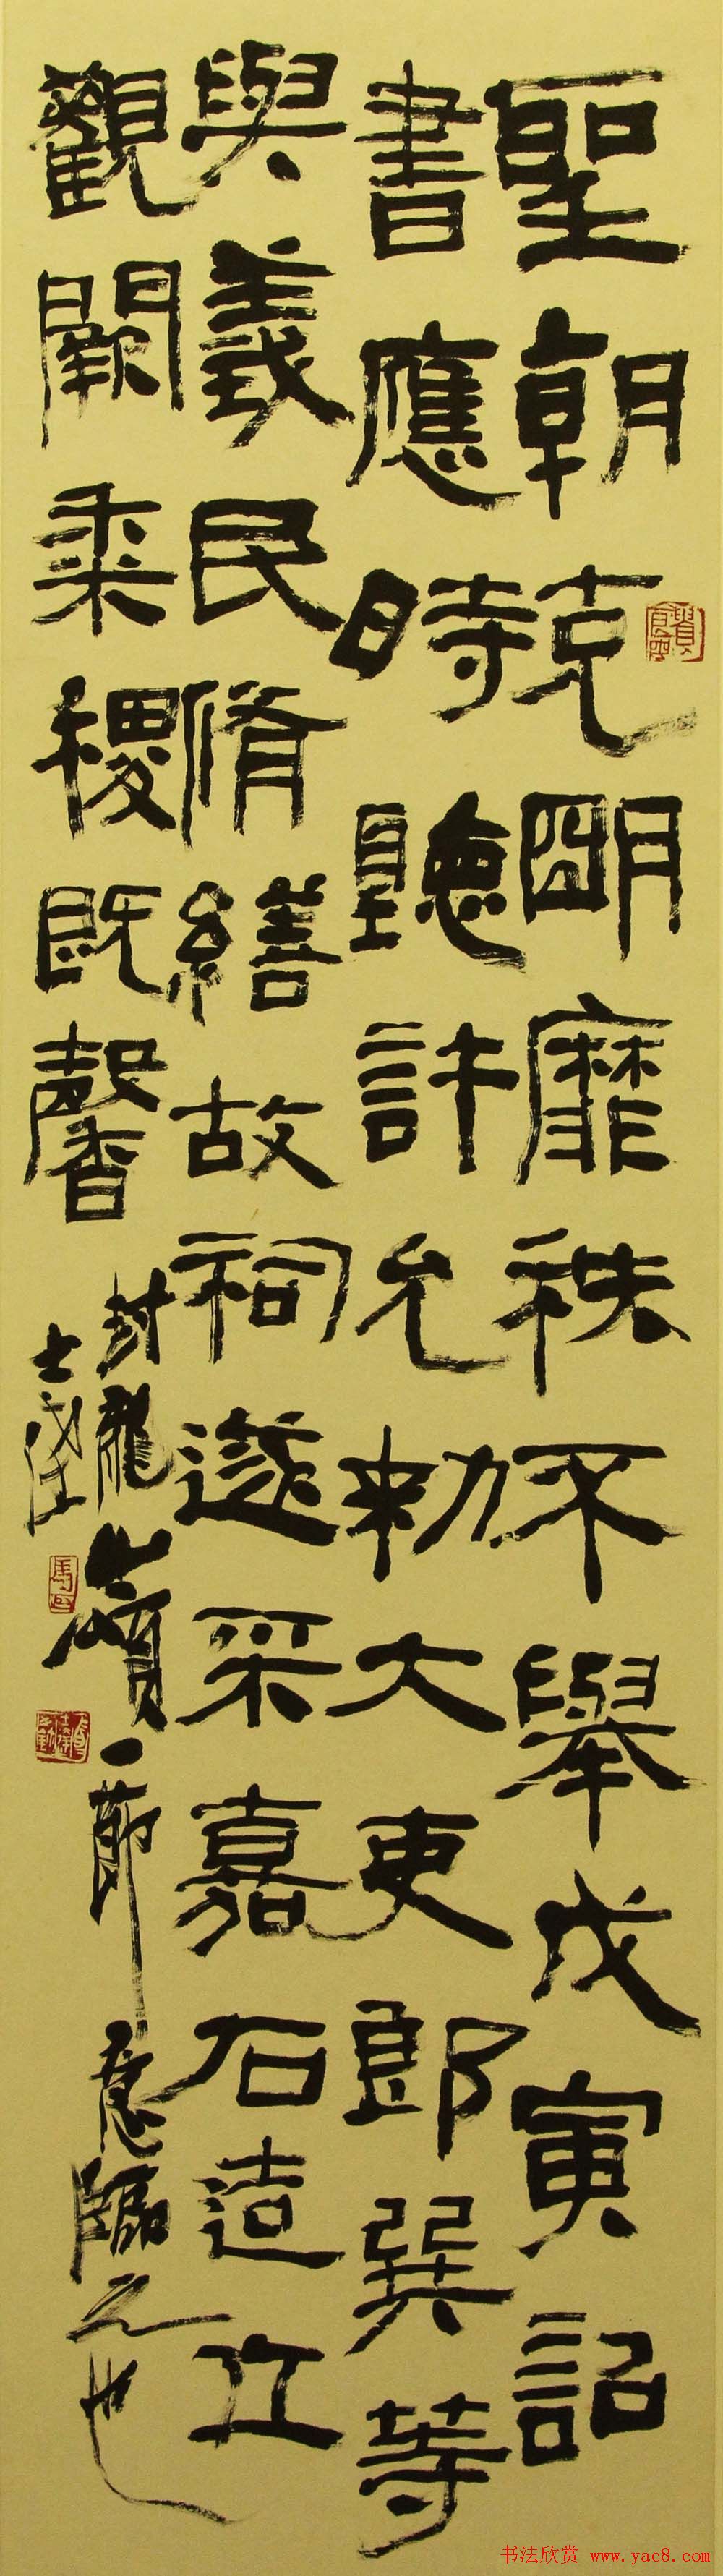 聖朝克朙靡秩不舉戊寅詔
書應時聽許允勑大吏郎巽等
與義民脩繕故祠遂采嘉石造立
觀闕黍稷既馨
封龍山頌一節意臨之也
书法欣赏 www.yac8.com